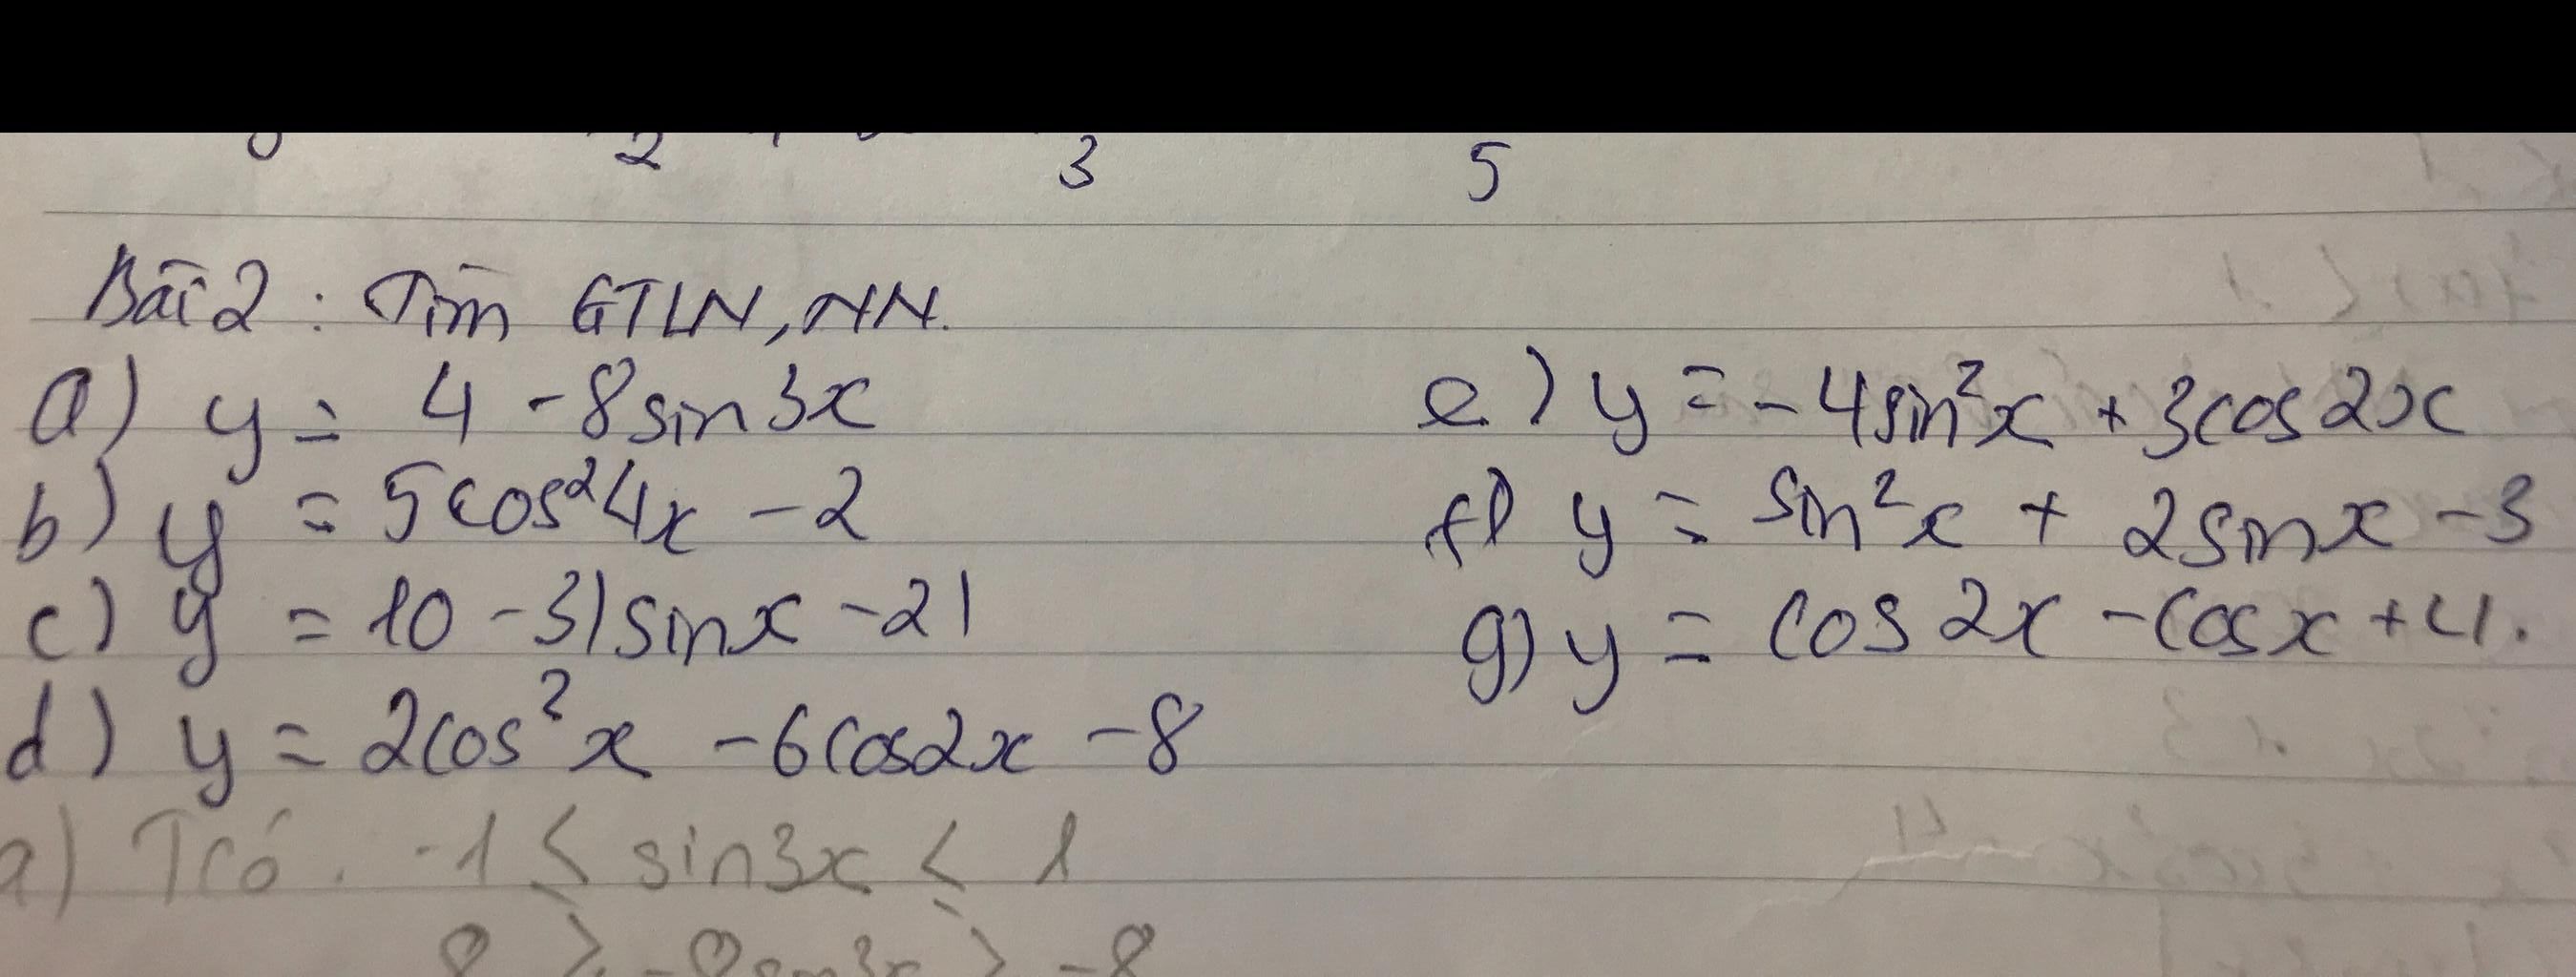 2 3 5
Bài 2 : Tìm GTLN, NN.
a) y = 4 - 8sin3x
b) y = 5cos²4x - 2
c) y = 10 - 3|sinx - 2|
d) y = 2cos²x - 6cos2x - 8
e) y = -4sin²x + 3cos2x
f) y = sin²x + 2sinx - 3
g) y = cos2x - cosx + 4.
a) Tcó. -1 ≤ sin3x ≤ 1
8 ≥ -8sin3x ≥ -8